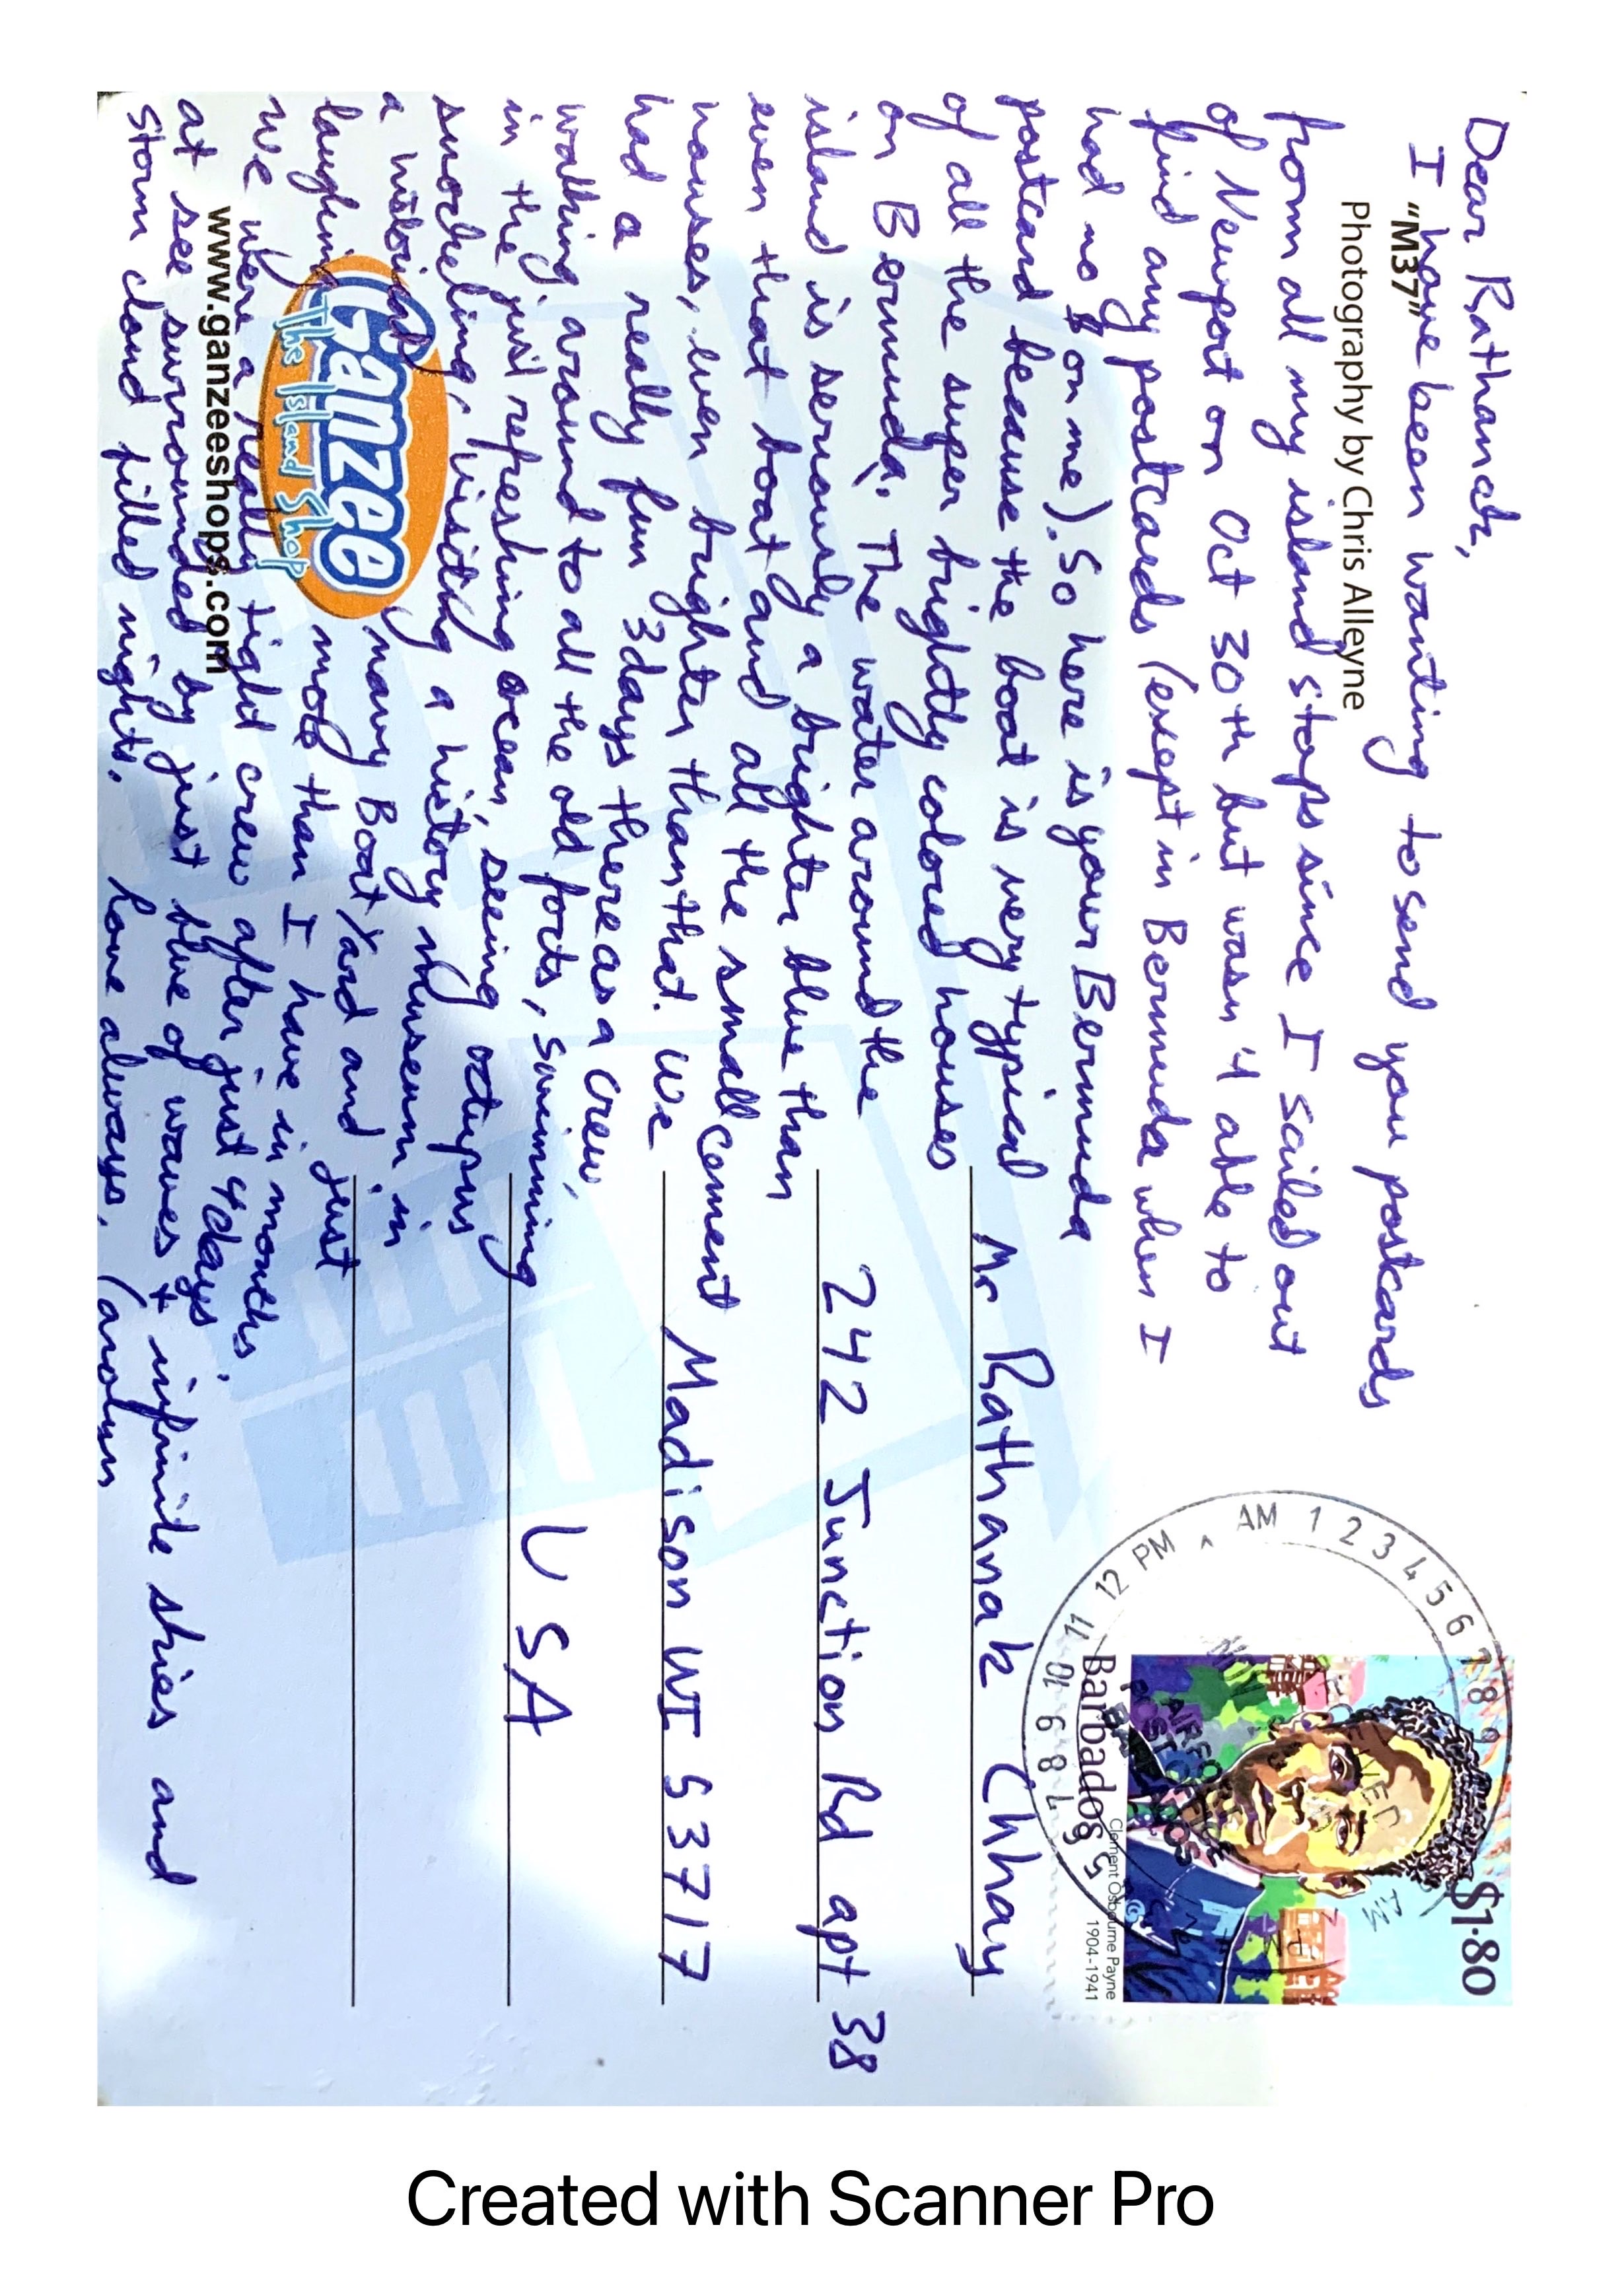 Dear Rathanak,
I have been wanting to send you postcards
"M37"
Photography by Chris Alleyne
from all my island stops since I sailed out
of Newport on Oct 30th but wasn't able to
find any postcards (exept in Bermuda when I
had no $ on me). So here is your Bermuda
postcard because the boat is very typical
of all the super brightly colored houses
on Bermuda. The water around the
island is seriously a brighter blue than
even that boat and all the small cement
houses, even brighter than that. We
had a really fun 3 days there as a crew,
walking around to all the old forts, swimming
in the just refreshing ocean, seeing octupus
snorkeling, visiting a history museum in
a historical navy Boat Yard and just
laughing more than I have in months.
We were a really tight crew after just 4 days
at see surrounded by just blue of waves + infinite skies and
storm cloud filled nights. love always,
Ganzee
The Island Shop
www.ganzeeshops.com
Mr Rathanak Chhay
242 Junction Rd apt 38
Madison WI 53717
USA
$1.80
Barbados
Clement Osbourne Payne
1904-1941
AM 1 2 3 4 5 6 7 8 9
11 12 PM